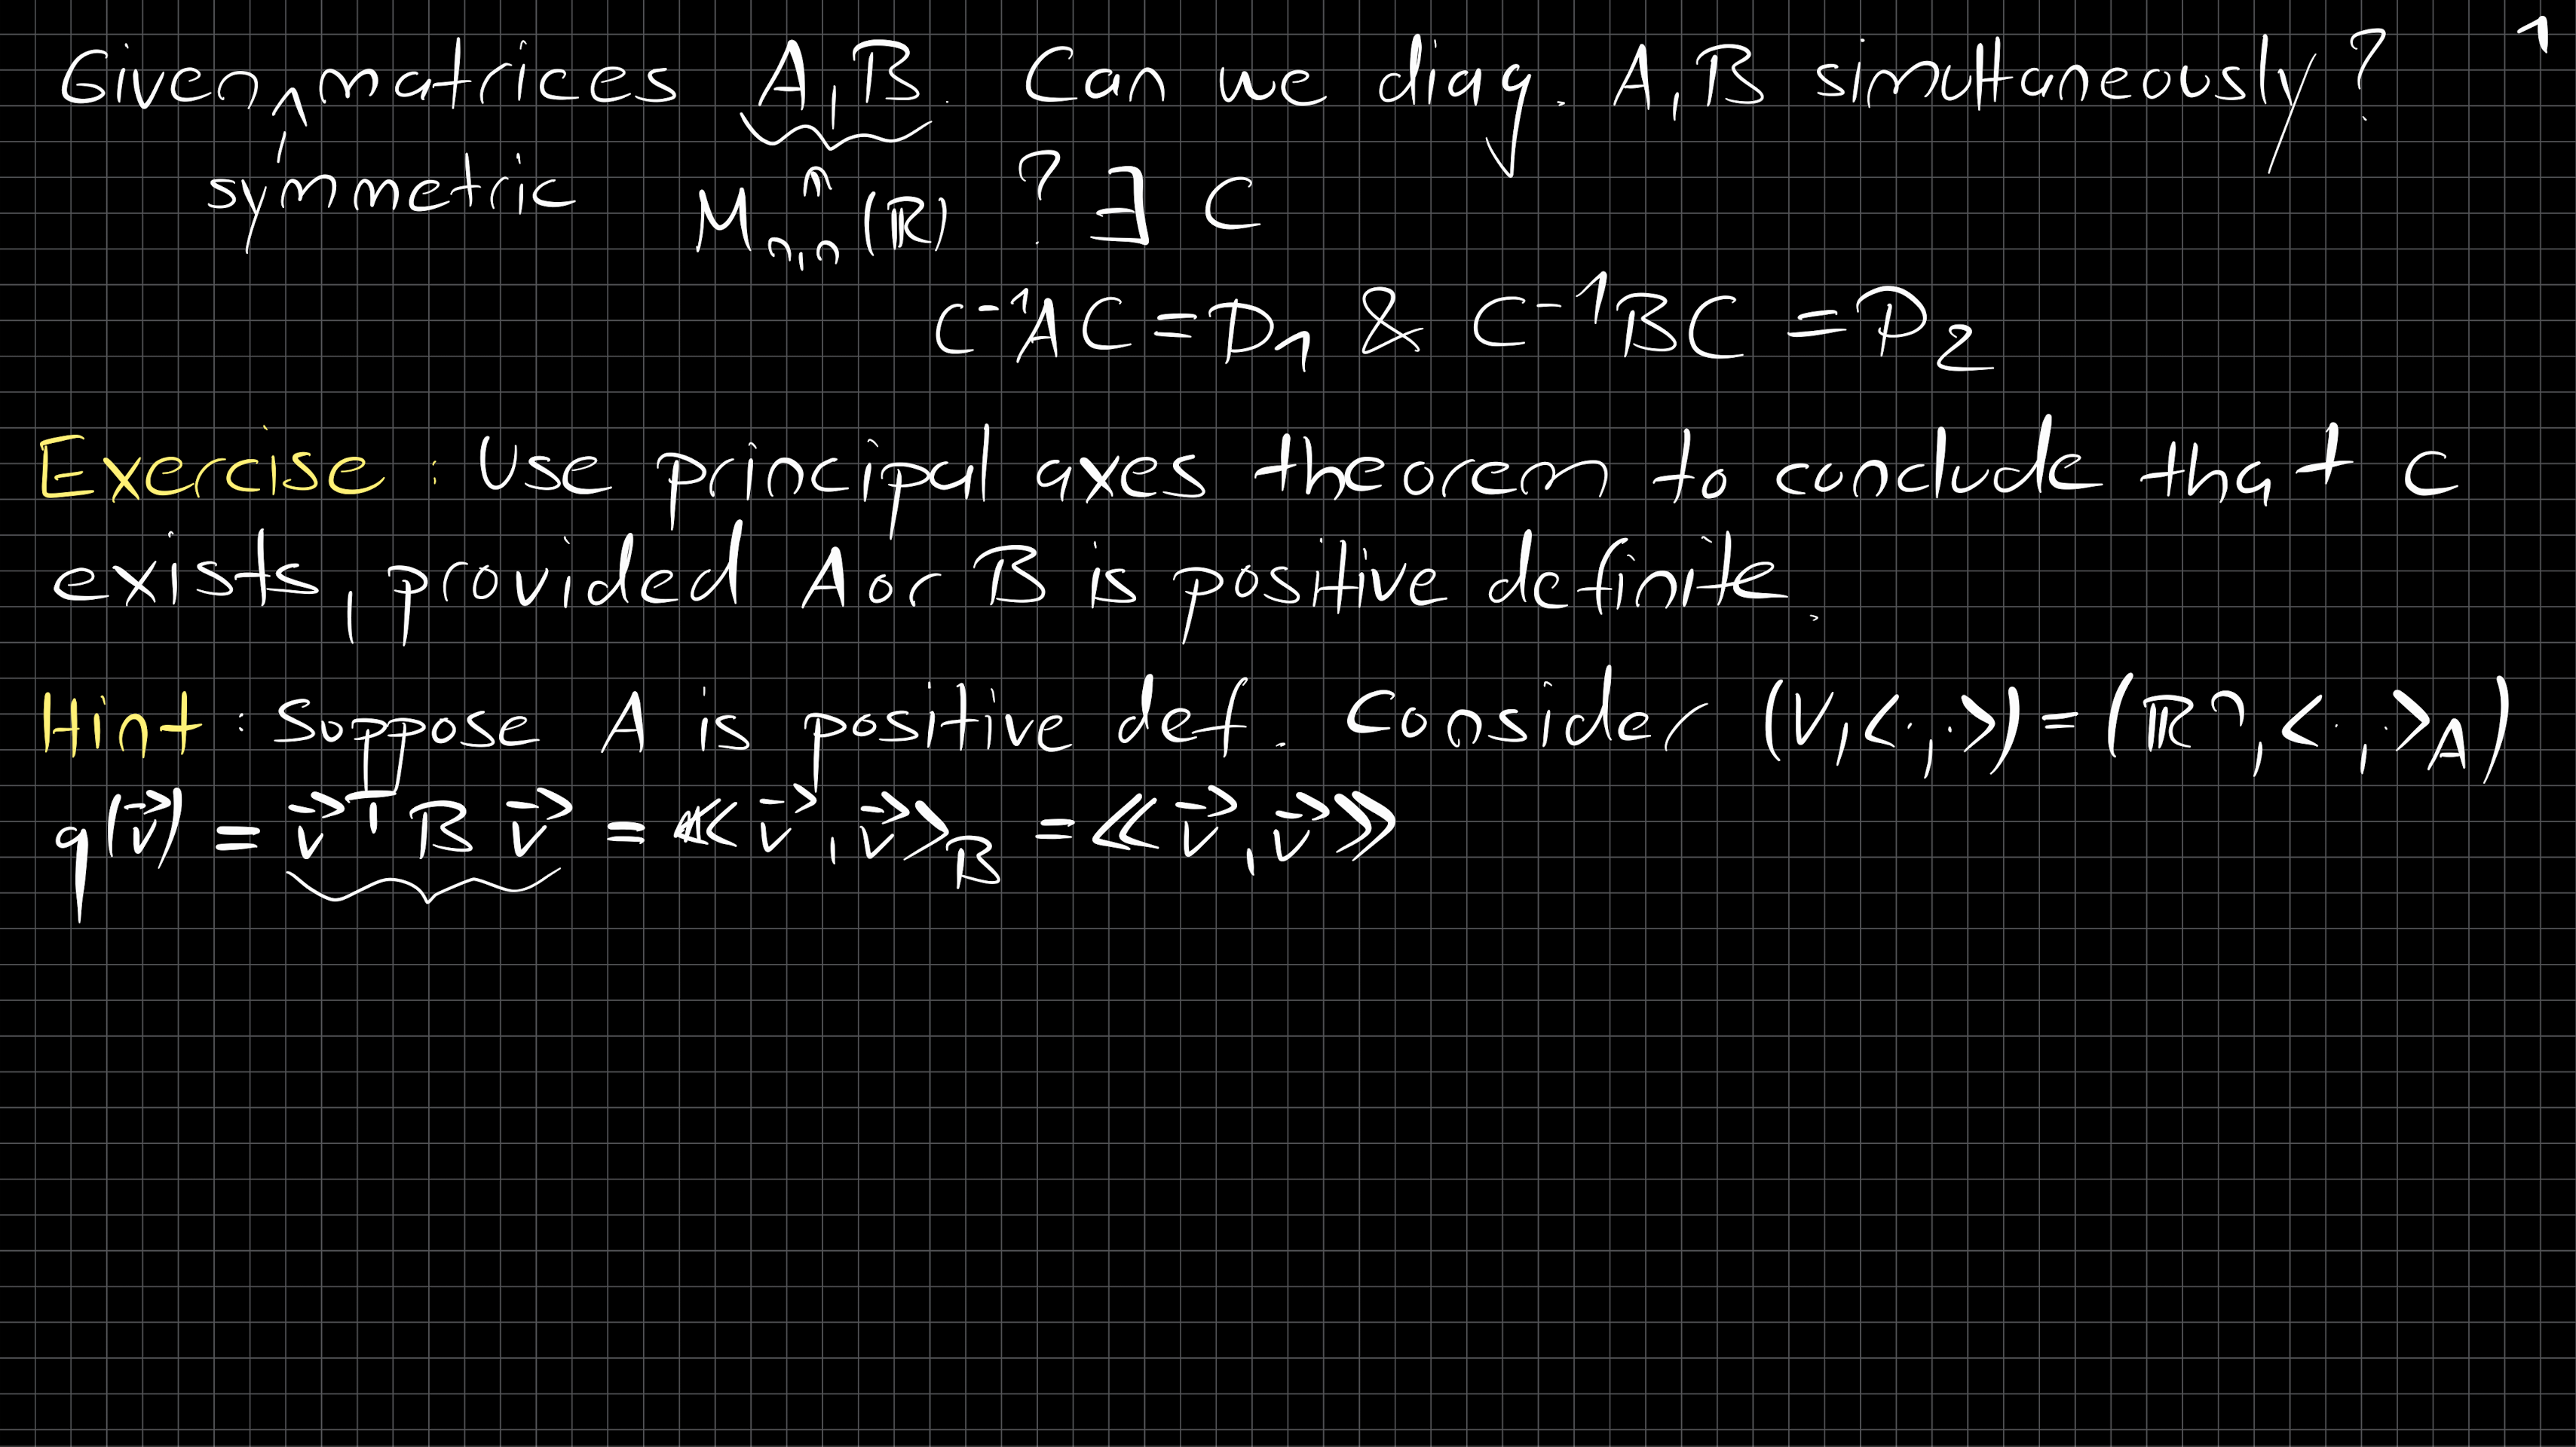 1
Given, symmetric matrices A, B. Can we diag. A, B simultaneously?
M_{n,n}(ℝ) ? ∃ C
C⁻¹AC = D₁ & C⁻¹BC = D₂
Exercise: Use principal axes theorem to conclude that C
exists, provided A or B is positive definite.
Hint: Suppose A is positive def. Consider (V, <·,·>) = (ℝⁿ, <·,·>_A)
q(v⃗) = v⃗ᵀ B v⃗ = ≪v⃗, v⃗>_B = ≪v⃗, v⃗≫